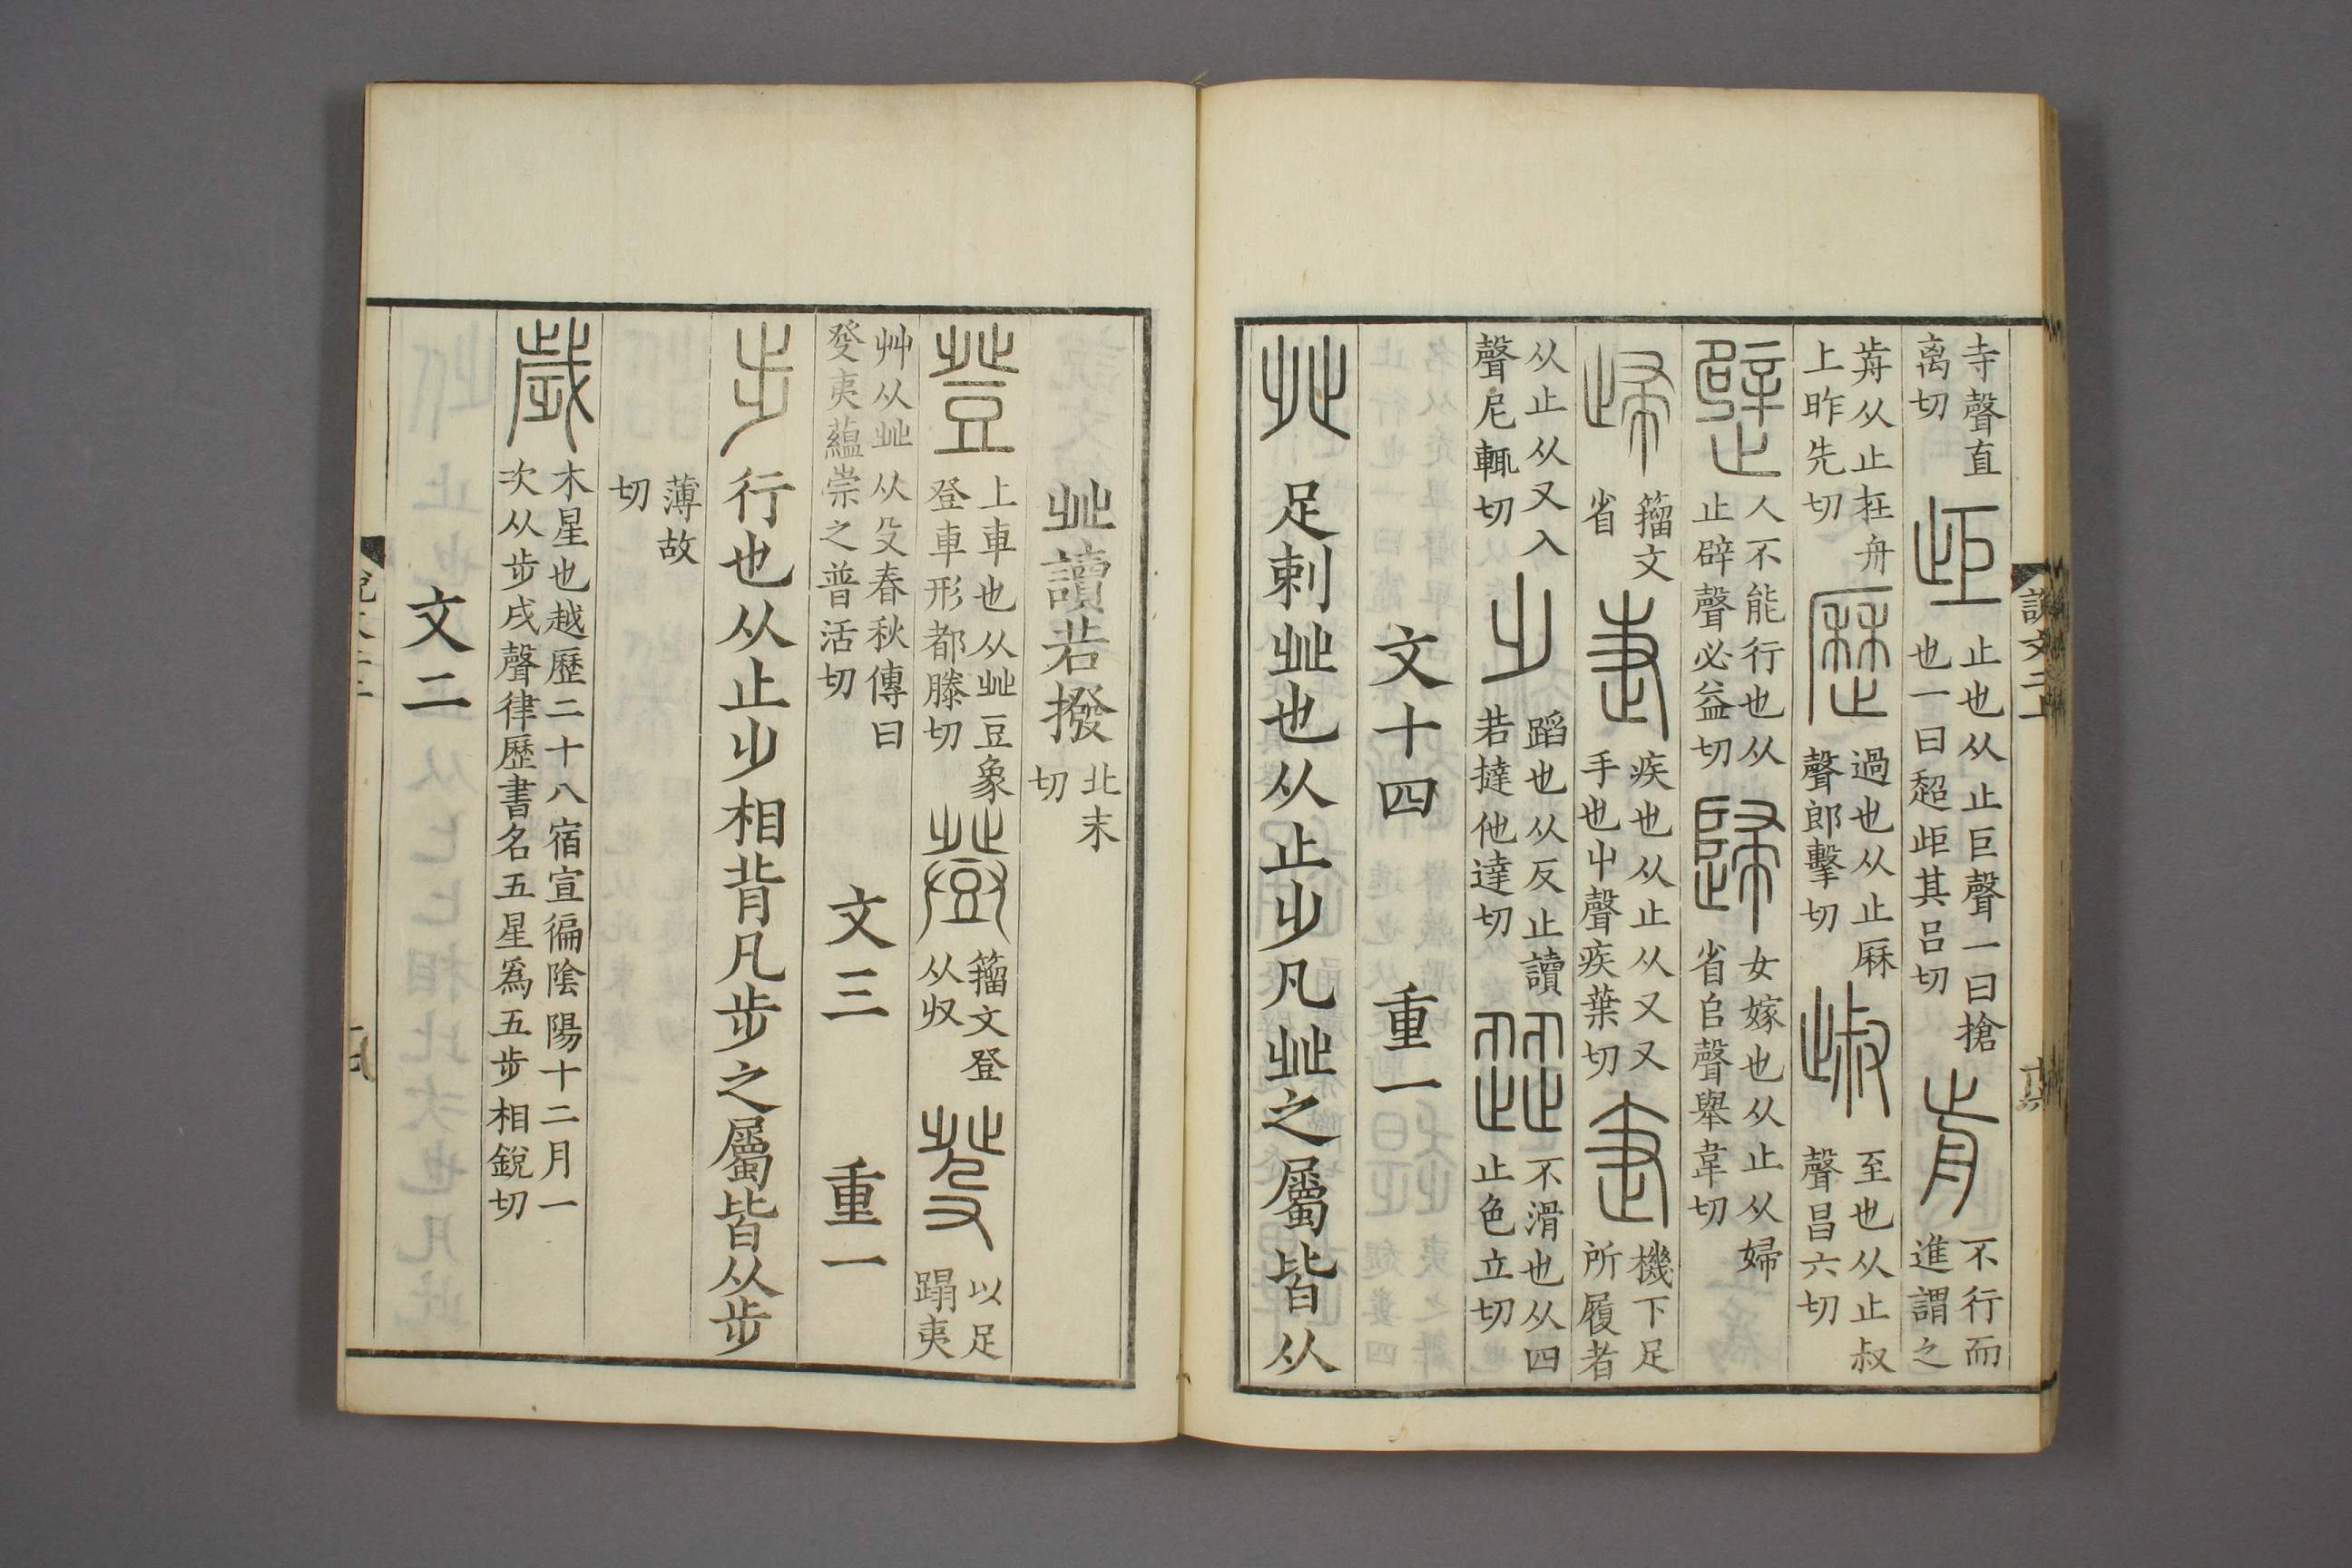 說文二上 十六
寺聲直离切 歫 止也从止巨聲一曰搶也一曰超歫其呂切 歬 不行而進謂之
歬从止在舟上昨先切 歷 過也从止厤聲郎擊切 㱐 至也从止叔聲昌六切
𤴣 人不能行也从止辟聲必益切 歸 女嫁也从止从婦省𠂤聲舉韋切
㱕 籒文省 疌 疾也从止从又又手也屮聲疾葉切 𡳐 機下足所履者
从止从又入聲尼輒切 𣥂 蹈也从反止讀若撻他達切 歰 不滑也从四止色立切
文十四 重一
癶 足剌癶也从止𣥂凡癶之屬皆从
癶讀若撥 北末切
登 上車也从癶豆象登車形都滕切 𤼷 籒文登从収 癹 以足蹋夷
艸从癶从殳春秋傳曰癹夷蘊崇之普活切 文三 重一
步 行也从止𣥂相背凡步之屬皆从步
薄故切
歲 木星也越歷二十八宿宣徧陰陽十二月一次从步戌聲律歷書名五星爲五步相銳切
文二